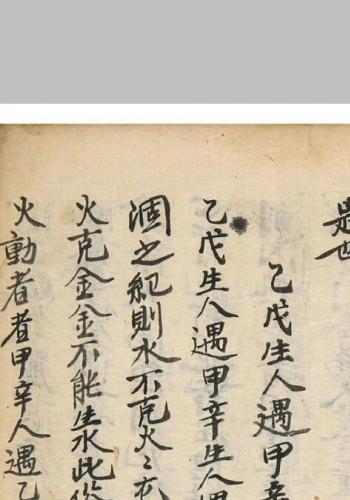 是也
乙戊生人遇甲辛
乙戊生人遇甲辛生人遇
涸之紀則水不克火〻
火克金金不能生水此
火動者者甲辛人遇乙